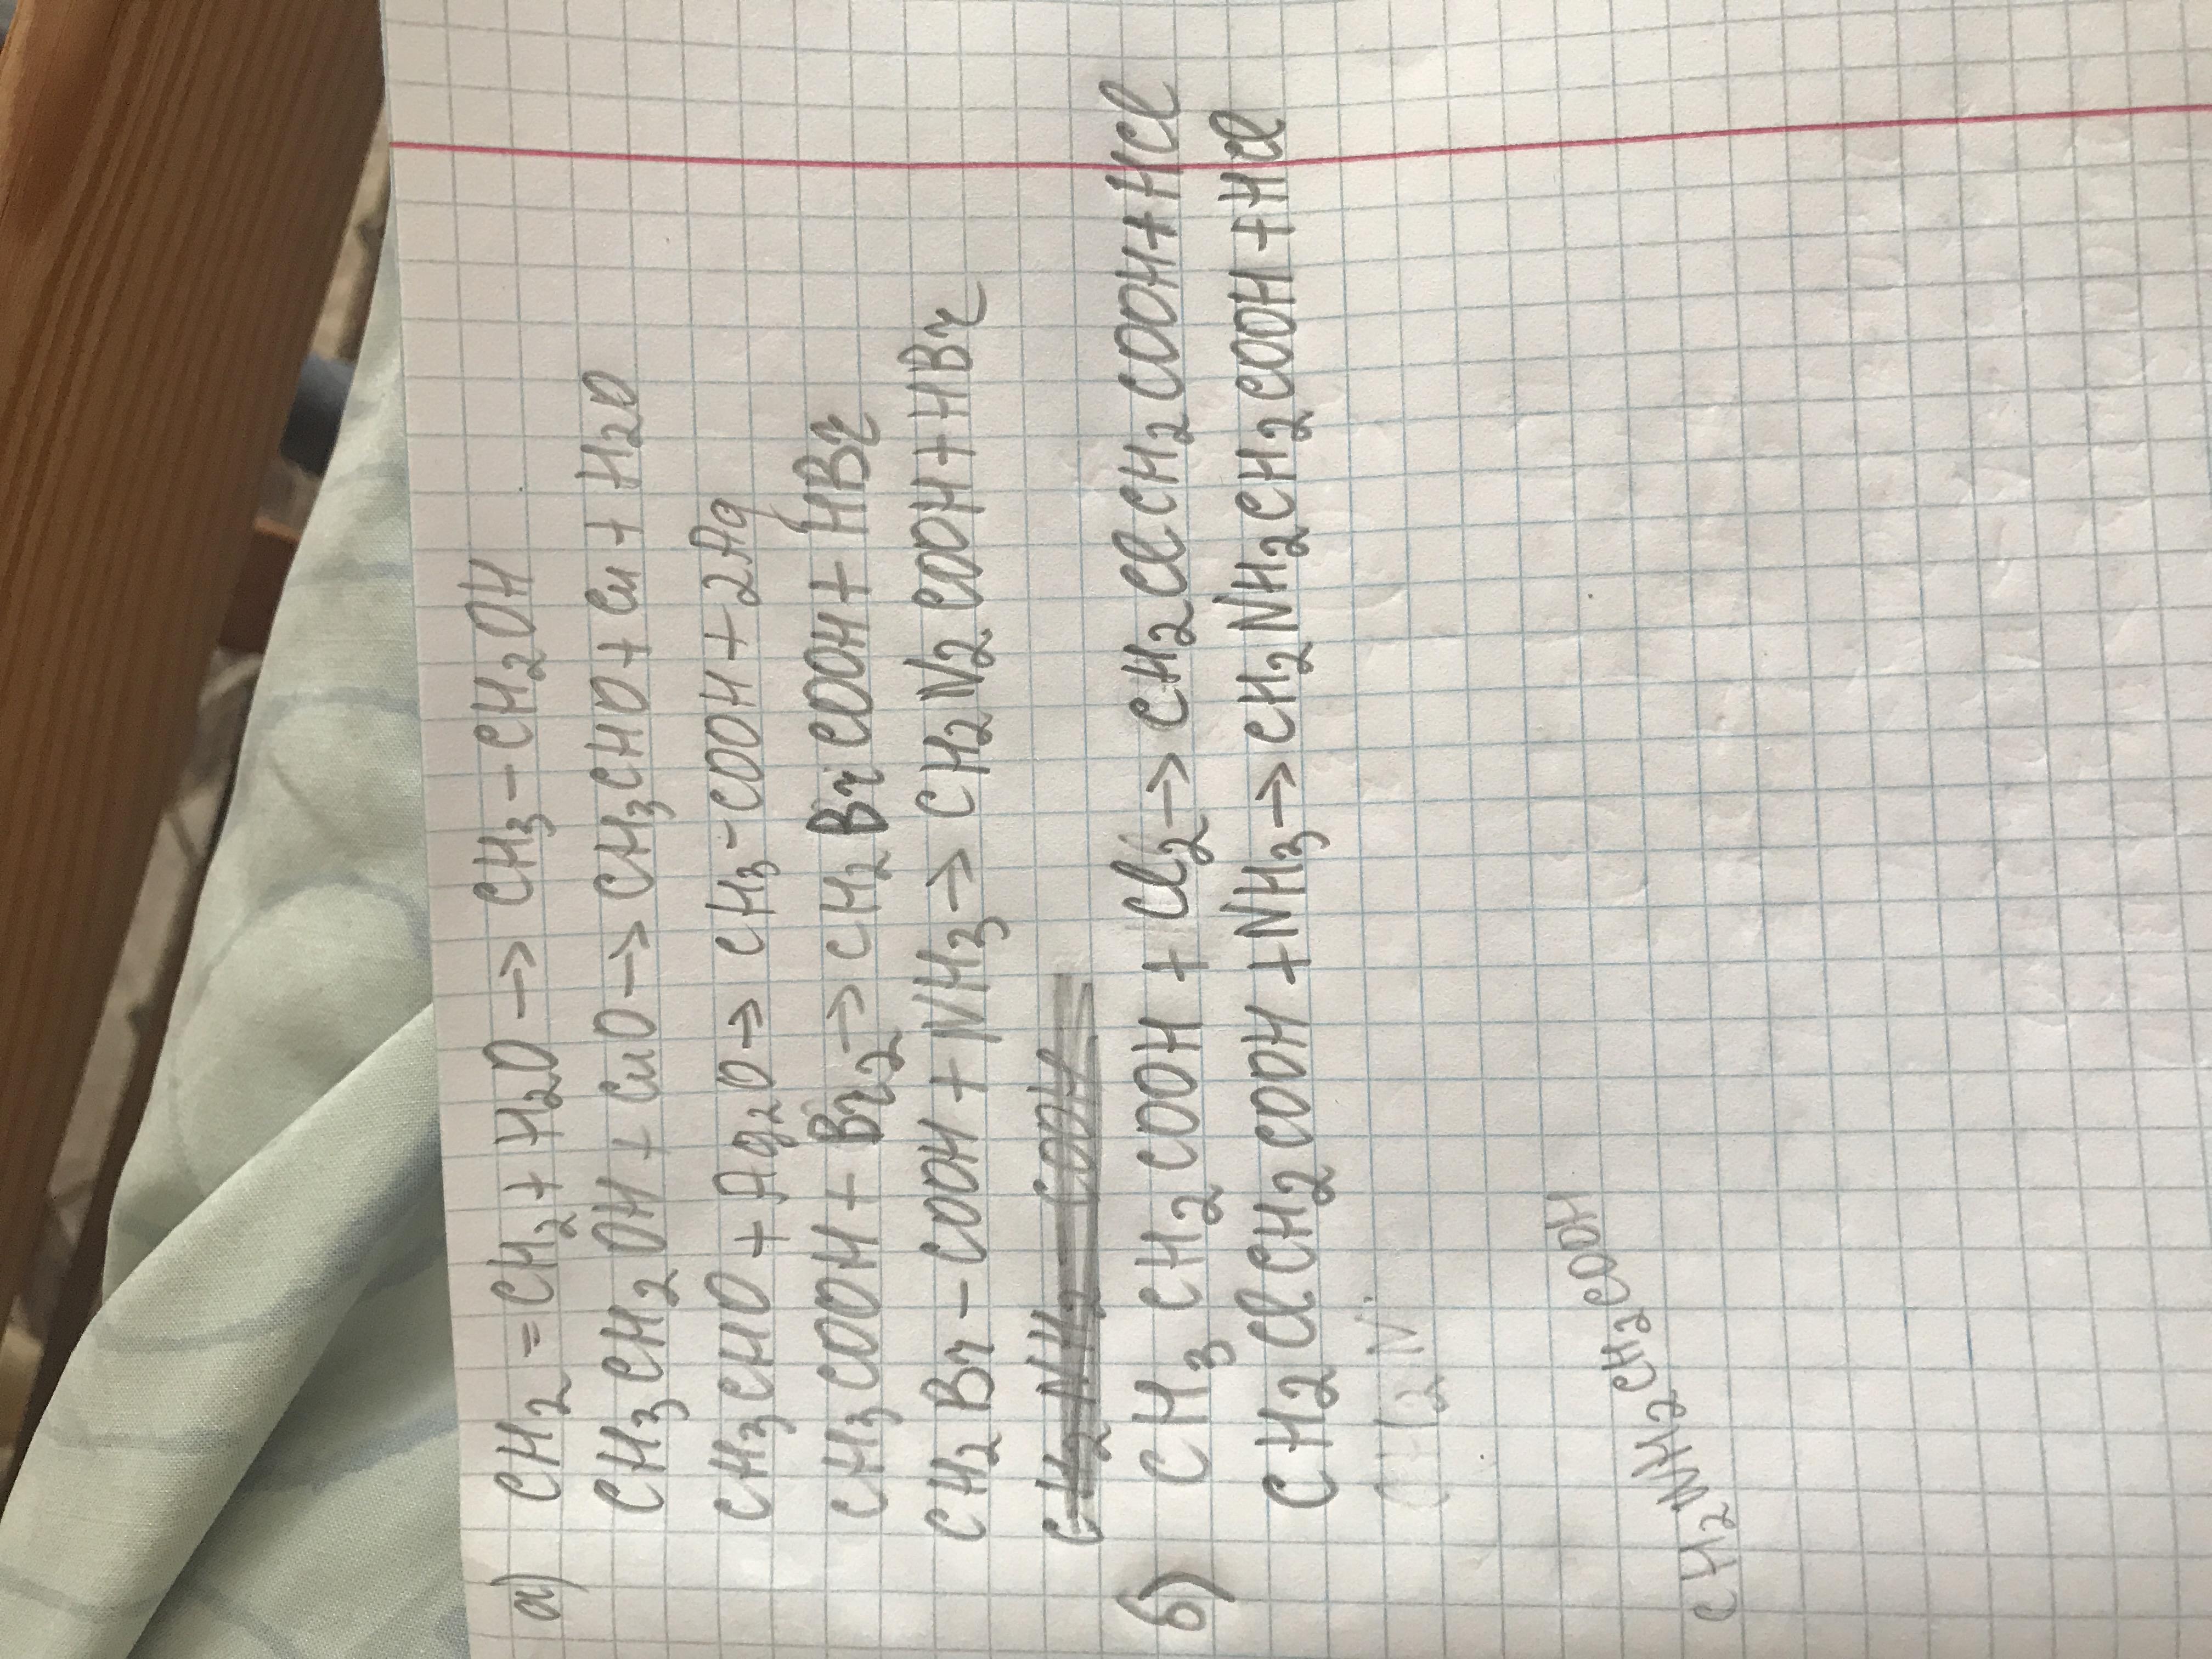 а) CH₂=CH₂+H₂O→CH₃-CH₂OH
CH₃CH₂OH+CuO→CH₃CHO+Cu+H₂O
CH₃CHO+Ag₂O→CH₃-COOH+2Ag
CH₃COOH+Br₂→CH₂BrCOOH+HBr
CH₂Br-COOH+NH₃→CH₂N₂COOH+HBr
CH₂NH₂-COOH
б) CH₃CH₂COOH+Cl₂→CH₂ClCH₂COOH+HCl
CH₂ClCH₂COOH+NH₃→CH₂NH₂CH₂COOH+HCl
CH2N
CH₂NH₂CH₂COOH